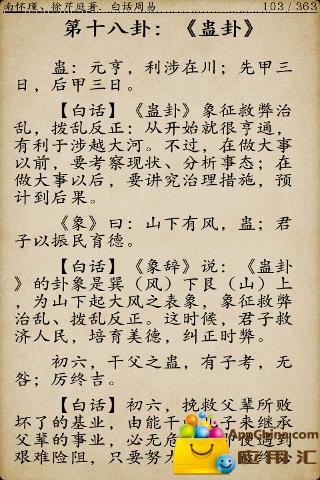 南怀瑾、徐芹庭著．白话周易 103 / 363
第十八卦：《蛊卦》
蛊：元亨，利涉在川；先甲三
日，后甲三日。
【白话】《蛊卦》象征救弊治
乱，拨乱反正：从开始就很亨通，
有利于涉越大河。不过，在做大事
以前，要考察现状、分析事态；在
做大事以后，要讲究治理措施，预
计到后果。
《象》曰：山下有风，蛊；君
子以振民育德。
【白话】《象辞》说：《蛊卦
》的卦象是巽（风）下艮（山）上
，为山下起大风之表象，象征救弊
治乱、拨乱反正。这时候，君子救
济人民，培育美德，纠正时弊。
初六，干父之蛊，有子考，无
咎；厉终吉。
【白话】初六，挽救父辈所败
坏了的基业，由能干
来继承
父辈的事业，必无危
便遇到
艰难险阻，只要努力
终
AppChina.com
应用汇